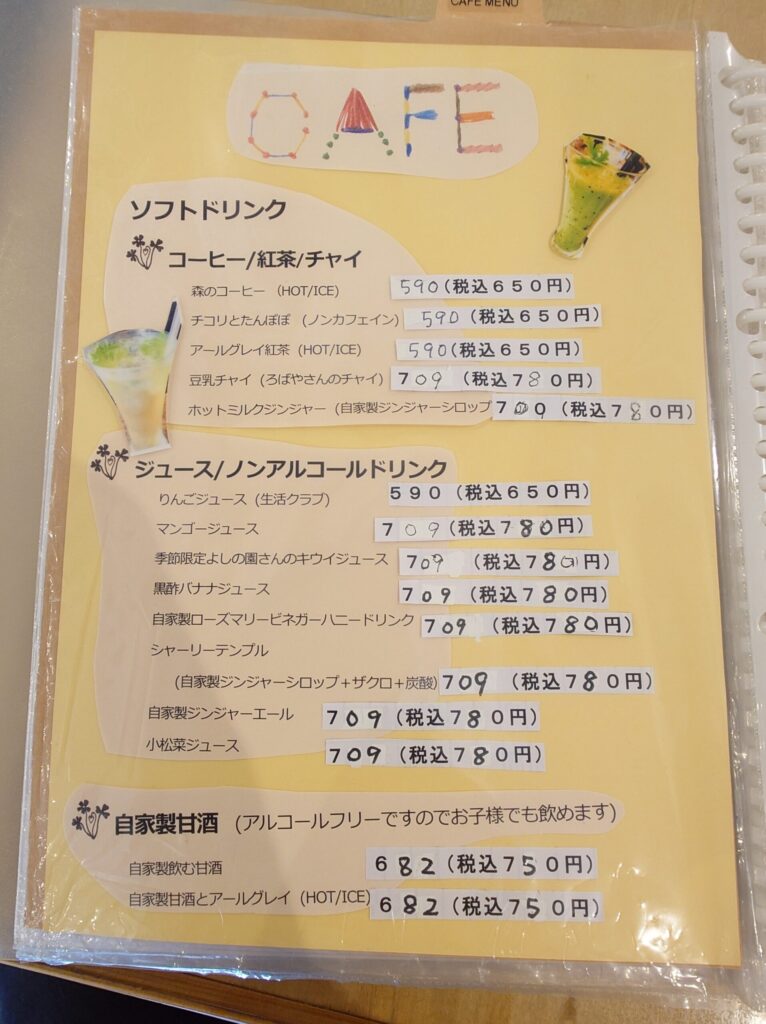 CAFE MENU
CAFE
ソフトドリンク
コーヒー/紅茶/チャイ
森のコーヒー (HOT/ICE) 590(税込650円)
チコリとたんぽぽ (ノンカフェイン) 590 (税込650円)
アールグレイ紅茶 (HOT/ICE) 590(税込650円)
豆乳チャイ (ろばやさんのチャイ) 709 (税込780円)
ホットミルクジンジャー (自家製ジンジャーシロップ 709 (税込780円)
ジュース/ノンアルコールドリンク
りんごジュース (生活クラブ) 590 (税込650円)
マンゴージュース 709(税込780円)
季節限定よしの園さんのキウイジュース 709 (税込780円)
黒酢バナナジュース 709 (税込780円)
自家製ローズマリービネガーハニードリンク 709 (税込780円)
シャーリーテンプル
(自家製ジンジャーシロップ+ザクロ+炭酸) 709 (税込780円)
自家製ジンジャーエール 709(税込780円)
小松菜ジュース 709 (税込780円)
自家製甘酒 (アルコールフリーですのでお子様でも飲めます)
自家製飲む甘酒 682(税込750円)
自家製甘酒とアールグレイ (HOT/ICE) 682(税込750円)